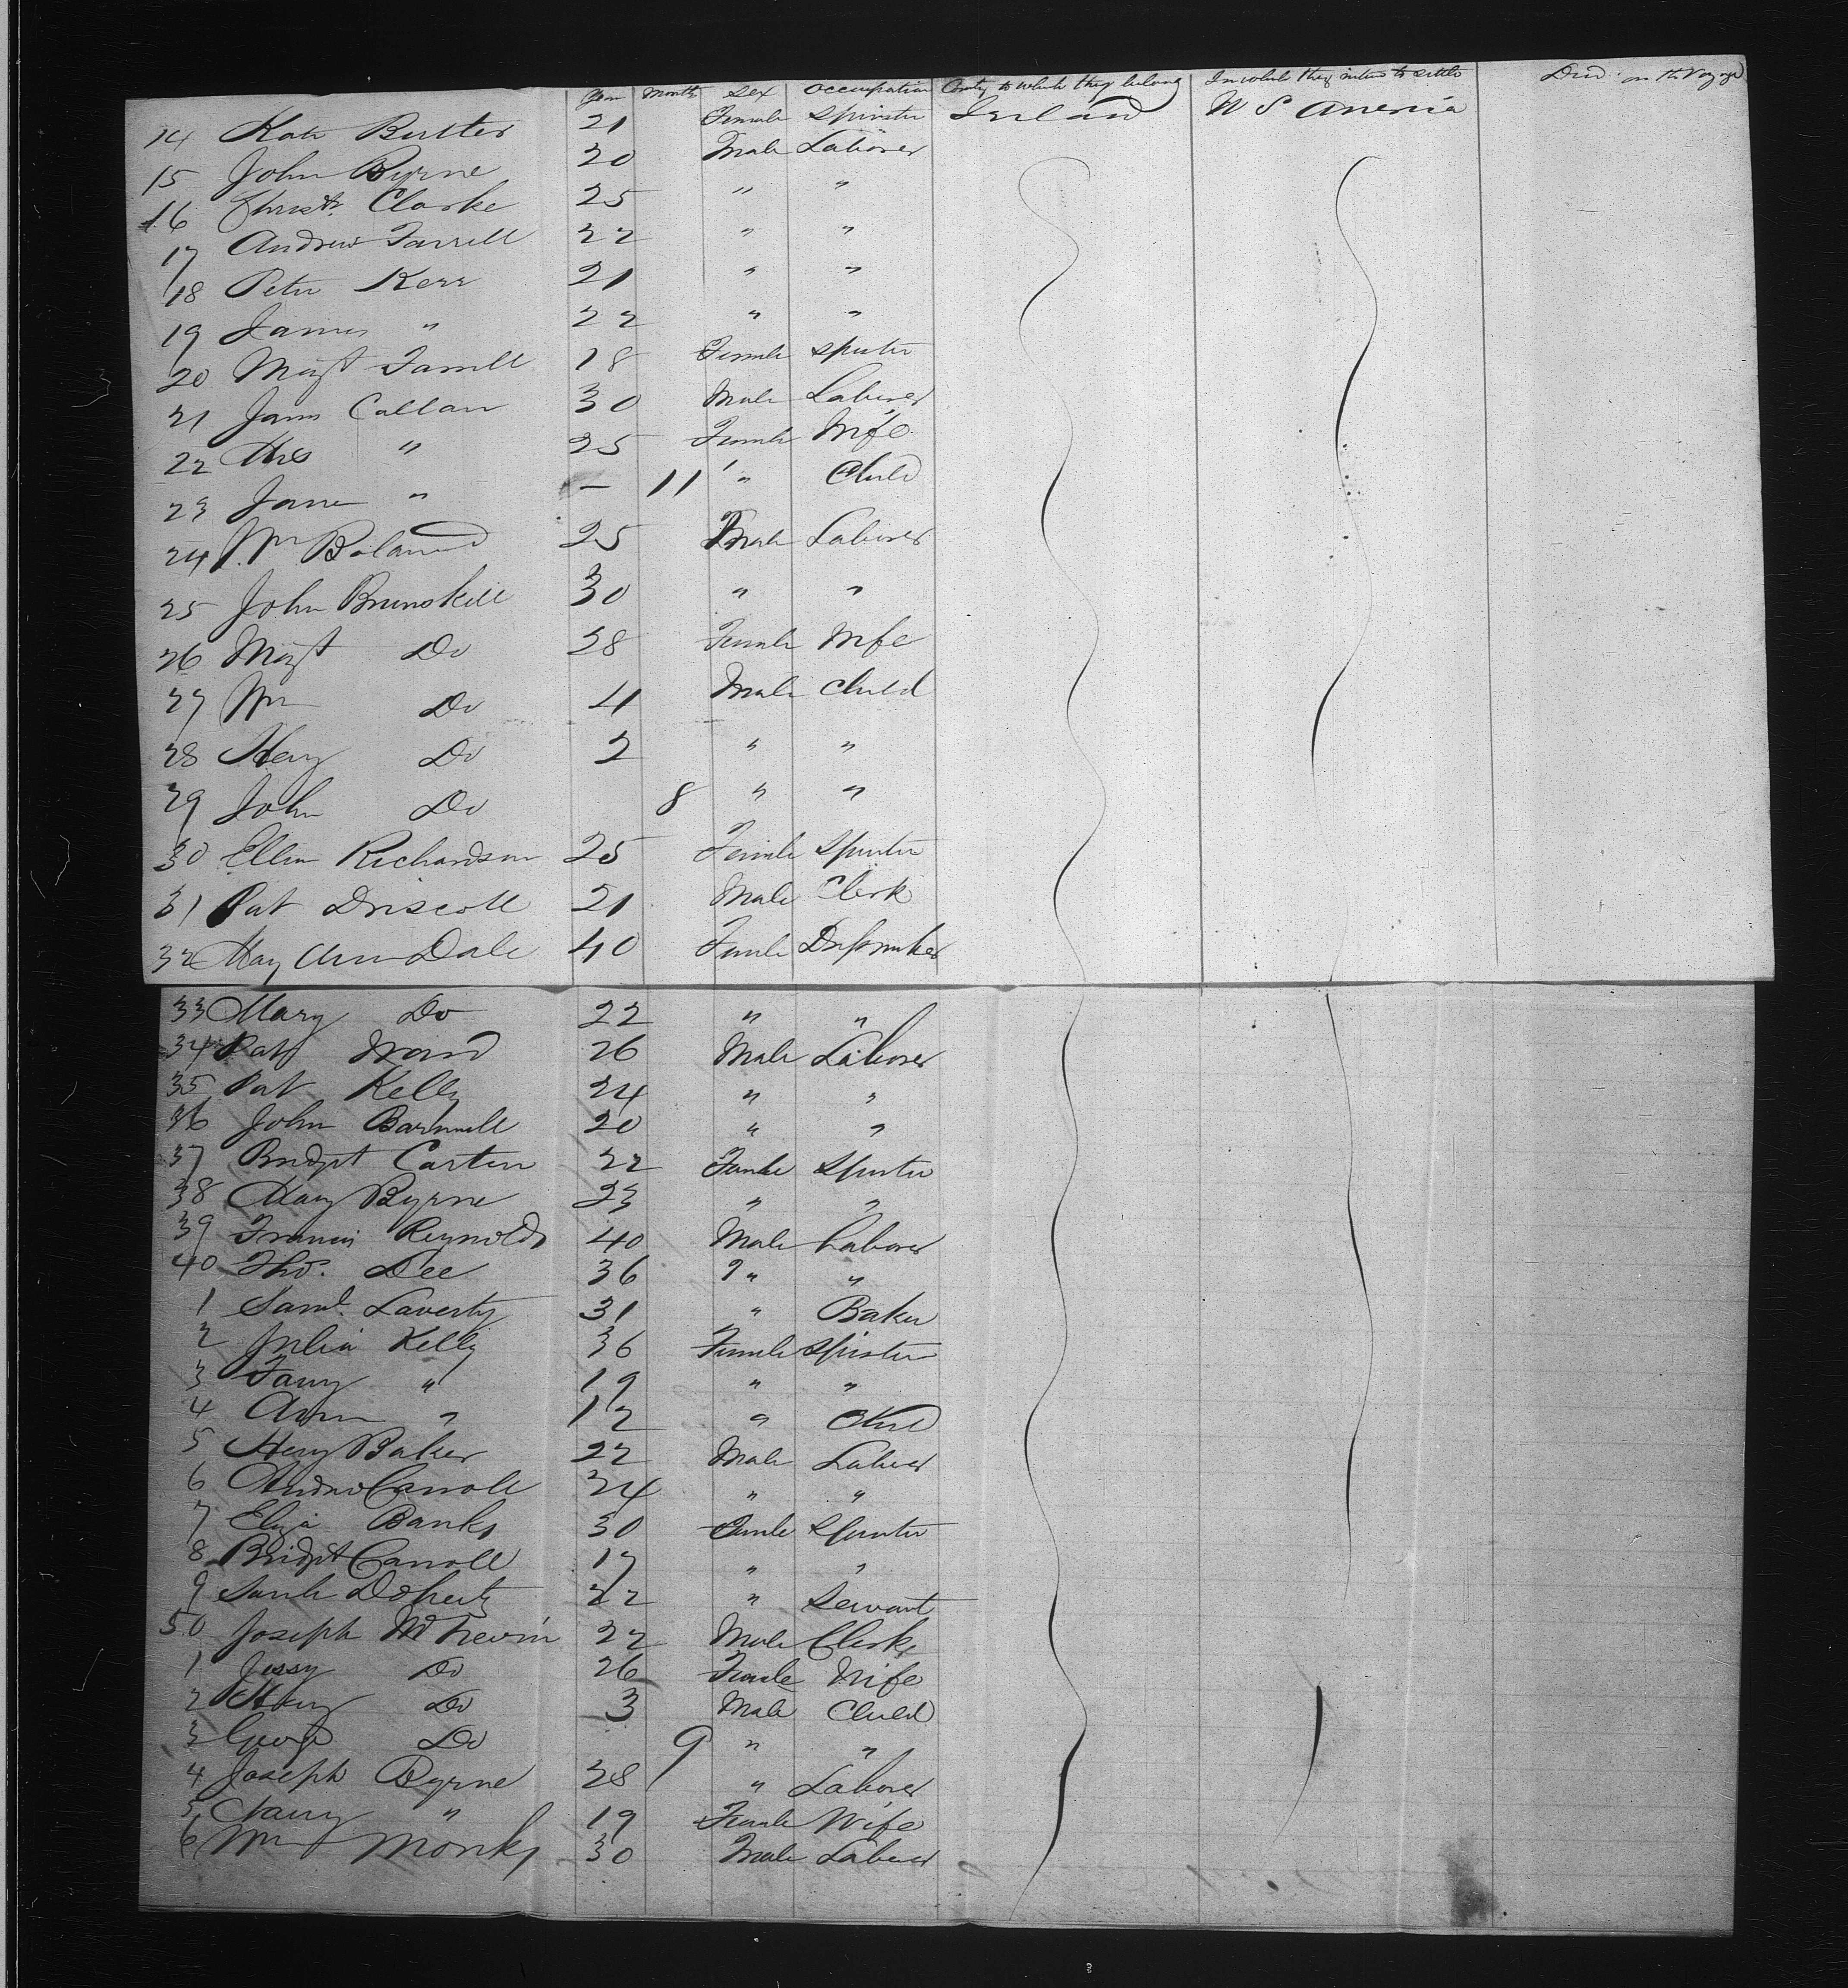 Years Months Sex Occupation County to which they belong In which they intend to settle Died on the Voyage
14 Kate Butler 21 Female Spinster Ireland U S America
15 John Byrne 20 Male Laborer
16 Christr. Clarke 25 " "
17 Andrew Farrell 22 " "
18 Peter Kerr 21 " "
19 James " 22 " "
20 Margt Farrell 18 Female Spinster
21 James Callan 30 Male Laborer
22 Mrs " 25 Female Wife
23 Jane " — 11 " Child
24 Wm Boland 25 Male Laborer
25 John Brunskill 30 " "
26 Margt Do 28 Female Wife
27 Wm Do 4 Male Child
28 Henry Do 2 " "
29 John Do 8 " "
30 Ellen Richardson 25 Female Spinster
31 Pat Driscoll 21 Male Clerk
32 Mary Ann Dale 40 Female Dressmaker
33 Mary Do 22 " "
34 Patk Ward 26 Male Laborer
35 Pat Kelly 24 " "
36 John Barnwell 20 " "
37 Bridgt Carten 22 Female Spinster
38 Mary Byrne 23 " "
39 Francis Reynolds 40 Male Laborer
40 Tho. Dee 36 " "
1 Saml. Laverty 31 " Baker
2 Julia Kelly 36 Female Spinster
3 Fanny " 19 " "
4 Ann " 12 " Child
5 Henry Baker 22 Male Laborer
6 Andrew Carroll 24 " "
7 Eliza Banks 30 Female Spinster
8 Bridgt Carroll 17 " "
9 Sarah Doherty 22 " Servant
50 Joseph McKevin 22 Male Clerk
1 Jessy Do 26 Female Wife
2 Henry Do 3 Male Child
3 George Do 9 " "
4 Joseph Byrne 28 " Laborer
5 " 19 Female Wife
6 Wm Monks 30 Male Laborer